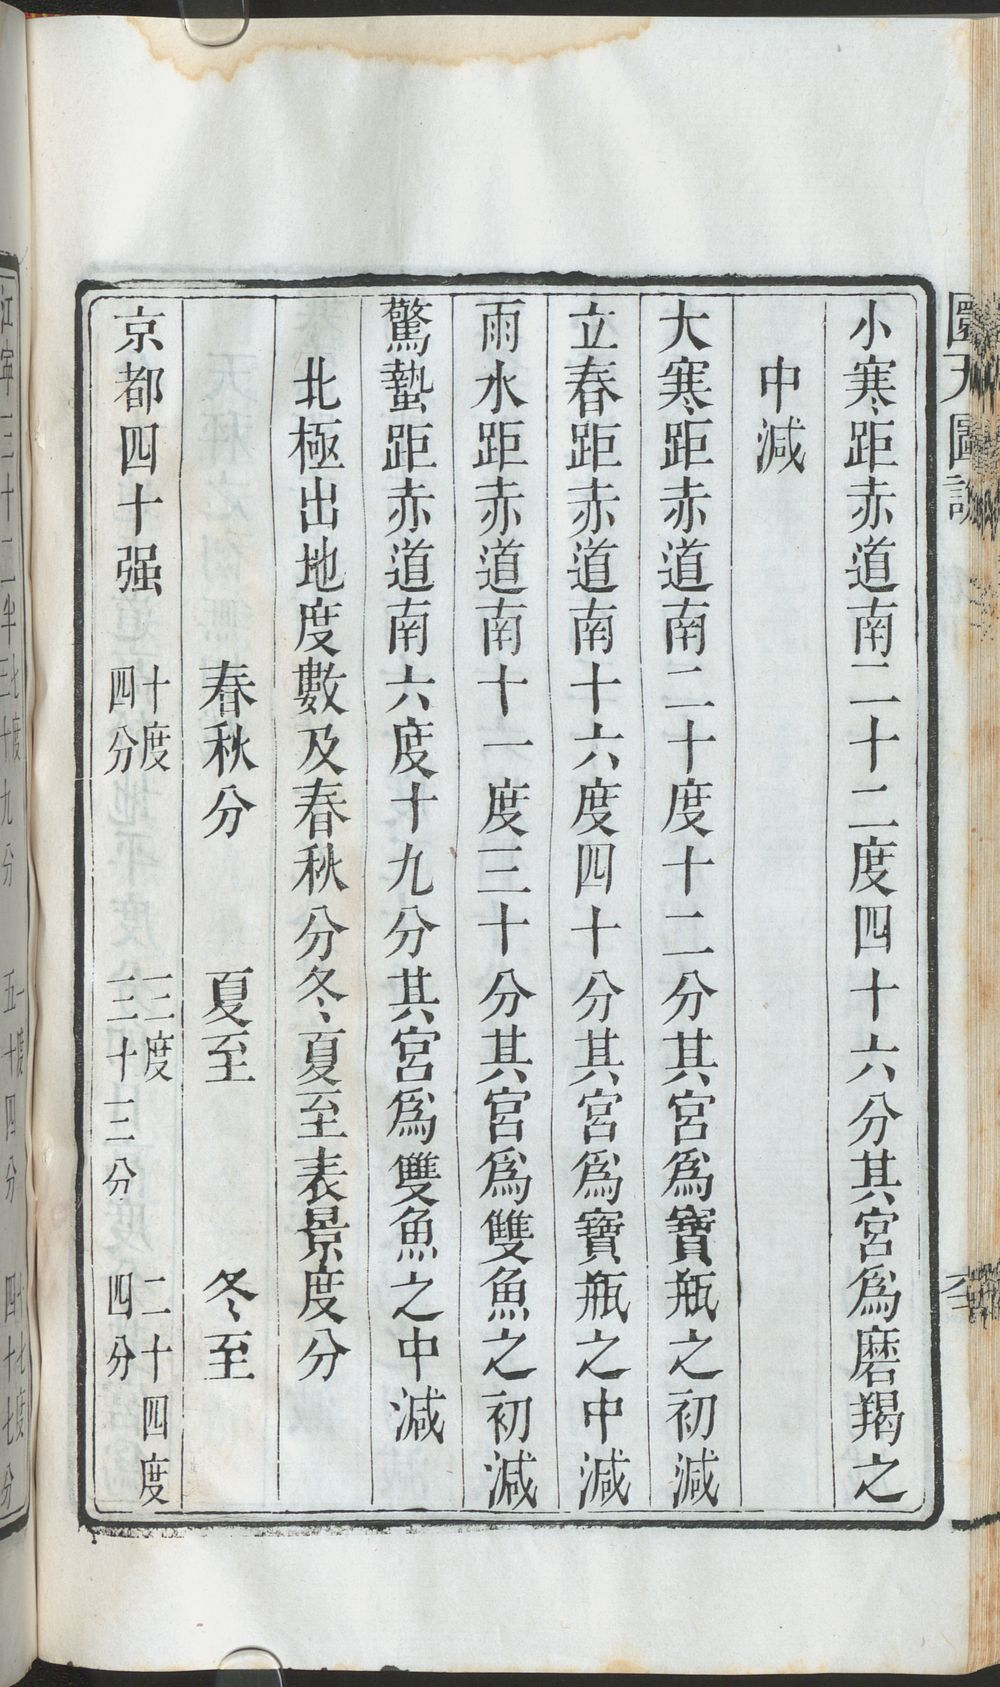 小寒距赤道南二十二度四十六分其宮爲磨羯之
中減
大寒距赤道南二十度十二分其宮爲寶瓶之初減
立春距赤道南十六度四十分其宮爲寶瓶之中減
雨水距赤道南十一度三十分其宮爲雙魚之初減
驚蟄距赤道南六度十九分其宮爲雙魚之中減
北極出地度數及春秋分冬夏至表景度分
春秋分 夏至 冬至
京都四十强 十度四分 三度三十三分 二十四度四分